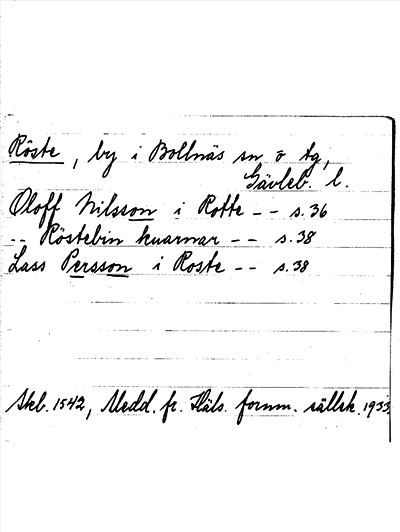 Röste, by i Bollnäs sn o tg,
Gävleb. l.
Oloff Nilsson i Rotte -- s. 36
-- Röstebin kuarnar -- s. 38
Lass Persson i Roste -- s. 38
Skb. 1542, Medd. fr. Häls. fornm. sällsk. 1933